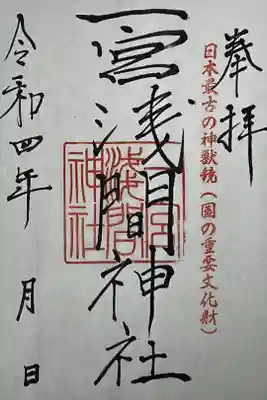 奉拝
日本最古の神獣鏡（国の重要文化財）
一宮浅間神社
一宮浅間神社
令和四年 月 日